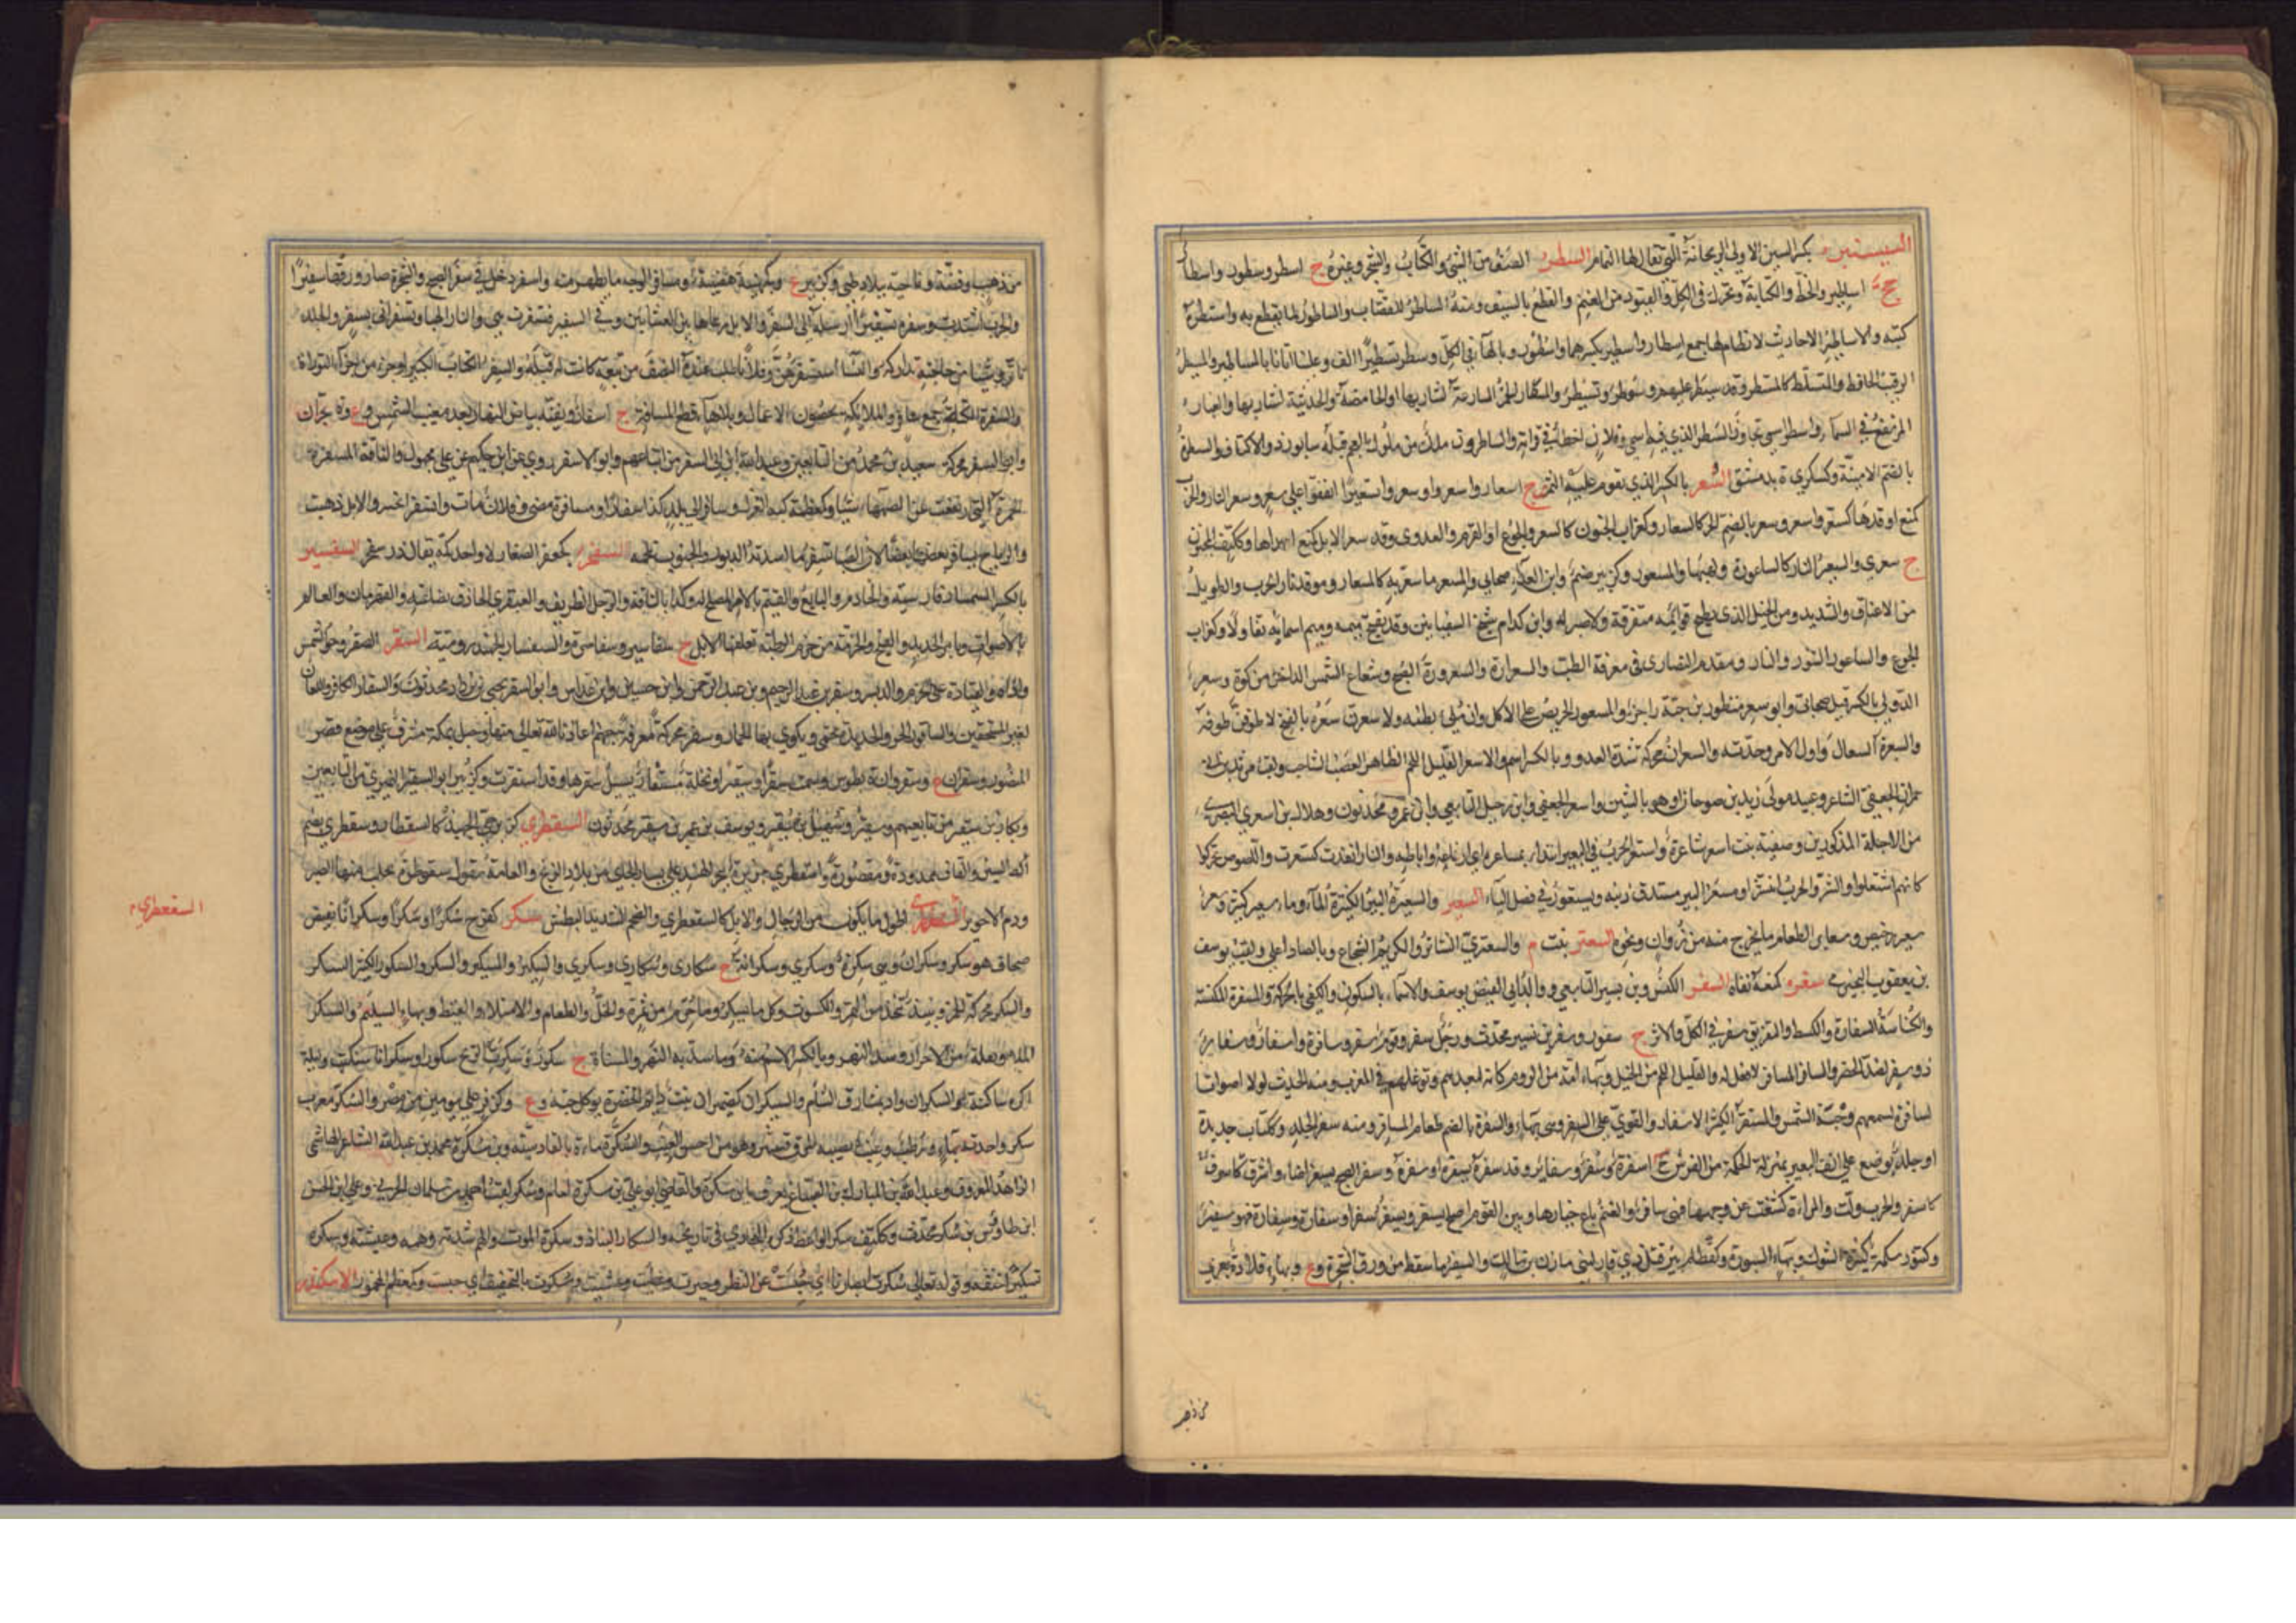 السيسنبر بكسر السين الاولى الريحانة التى تقال لها النمام السطر الصف من الشئ والكتاب والشجر وغيره ج اسطر وسطور واسطار
جج اساطير والخط والكتابة ويحرك فى الكل والعتود من الغنم والقطع بالسيف ومنه الساطر للقصاب والساطور لما يقطع به واستطره
كتبه والاساطير الاحاديث لا نظام لها جمع اسطار واسطير بكسرهما واسطور وبالهآء فى الكل وسطر تسطيرا الف وعلينا اتانا بالاساطير والمسيطر
الرقيب الحافظ والمتسلط كالمسطر وقد سيطر عليهم وسوطر وتسيطر والمسطار الخمر الصارعة لشاربها او الحامضة والحديثة لشاربها والغبار
المرتفع فى السمآء واسطر اسمى تجاوز السطر الذى فيه اسمى وفلان اخطأ فى قراته والساطرون ملك من ملوك العجم قتله سابور ذو الاكتاف والسطرة
بالضم الامنية وكسكرى ة بدمشق السعر بالكسر الذى يقوم عليه الثمن ج اسعار واسعروا وسعروا تسعيرا اتفقوا على سعر وسعر النار والحرب
كمنع اوقدها كسعر واسعر وسعر بالضم الحر كالسعار وكغراب الجنون كالسعر والجوع او القرم والعدوى وقد سعر الابل كمنع اعداها وككتف المجنون
ج سعرى والسعير النار كالساعورة ولهبها والمسعور وكزبير صنم وابن العداء صحابى والمسعر ما سعر به كالمسعار وموقد نار الحرب والطويل
من الاعناق والشديد ومن الخيل الذى يطيح قوائمه متفرقة ولا صبر له وابن كدام شيخ السفيانين وقد يفتح ميمه وميم اسمائه تفاولا وكغراب
الجوع والساعور التنور والنار ومقدم النصارى فى معرفة الطب والسعرارة والسعرورة الصبح وشعاع الشمس الداخل من كوة وسعر
الدولى بالكسر قيل صحابى وابو سعر منظور بن حبة راجز والمسعور الحريص على الاكل وان ملئ بطنه ولا سعرن سعره بالفتح لاطوفن طوفه
والسعرة السعال واول الامر وحدته والسعران محركة شدة العدو وبالكسر اسم والاسعر القليل اللحم الظاهر العصب الشاحب ولقب مرثد بن
حمران الجعفى الشاعر وعبيد مولى زيد بن صوحان او هو بالشين واسعر الجعفى وابن رحيل التابعى وابن عمرو محدثون وهلال بن اسعر البصرى
من الاجلة المذكورين وصفية بنت اسعر شاعرة واستعر الحرب فى البعير ابتداء بمساعره اى ارفاغه واباطه والنار اتقدت كتسعرت واللصوص تحركوا
كانهم اشتعلوا والشر والحرب انتشرا ومسعر البعير مستدق ذنبه ويستعور فى فصل اليآء السعبر والسعبرة البئر الكثيرة المآء وماء سعبر كثير وسعر
سعبر رخيص وسعابر الطعام ما يخرج منه من زوان ونحوه السعتر نبت م والسعترى الشاطر والكريم الشجاع وبالصاد اعلى ولقب يوسف
بن يعقوب النجيرمى سغره كمنعه نفاه السفر الكنس وبن نسير التابعى ووالد ابى الفيض يوسف والاسماء بالسكون والكنى بالحركة والمسفرة المكنسة
والكناسة السفارة والكشط والتفريق يسفر فى الكل والاثر ج سفور وسفر بن نسير محدث ورجل سفر وقوم سفر وسافرة واسفار وسفار
ذوو سفر لضد الحضر والسافر المسافر لا فعل له والقليل اللحم من الخيل وبهاء امة من الروم كانه لبعدهم وتوغلهم فى المغرب ومنه الحديث لولا اصوات
السافرة لسمعتم وجبة الشمس والمسفر الكثير الاسفار والقوى على السفر وهى بهاء والسفرة بالضم طعام المسافر ومنه سفرة الجلد وككتاب حديدة
او جلدة توضع على انف البعير بمنزلة الحكمة من الفرس ج اسفرة وسفر وسفائر وقد سفره يسفره واسفره وسفر الصبح يسفر اضاء واشرق كاسفر
كاسفر والحرب ولت والمراة كشفت عن وجهها فهى سافر والغنم باع خيارها وبين القوم اصلح يسفر ويسفر سفرا وسفارة وسفارة فهو سفير
وكتنور سمكة كثيرة الشوك وبهاء السبورة وكقطام بئر قبل ذى قار لبنى مازن بن مالك والسفير ما سقط من ورق الشجر وع وبهاء قلادة بعرى
من ذهب
من ذهب وفضة وناحية ببلاد طى وكزبير ع وكجهينة هضبة ومسافر الوجه ما يظهر منه واسفر دخل فى سفر الصبح والشجرة صار ورقها سفيرا
والحرب اشتدت وسفره تسفيرا ارسله الى السفر والابل رعاها بين العشائين وفى السفير فتسفرت هى والنار الهبها وتسفر اتى بسفر والجلد
تاثر وشيئا من حاجته تداركه والنسا استسفرهن وفلانا طلب عنده النصف من تبعة كانت له قبله والسفر الكتاب الكبير او جزء من اجزاء التوراة
والسفرة الكتبة جمع سافر والملائكة يحصون الاعمال وبلا هآء قطع المسافة ج اسفار وبقية بياض النهار بعد مغيب الشمس وع وة بحران
وابو السفر محركة سعيد بن محمد من التابعين وعبد الله بن ابى السفر من اتباعهم وابو الاسفر روى عن ابن حكيم عن على مجهول والناقة المسفرة
الحمرة التى ارتفعت عن الصهباء شيئا وكمعظمة كبة الغزل وسافر الى بلد كذا سفارا ومسافرة مضى وفلان مات وانسفر انحسر والابل ذهبت
والرياح يسافر بعضها بعضا لان الصبا تسفر ما اسدته الدبور والجنوب تلحمه السفسير
بالكسر السمسار فارسية والخادم والتابع والقيم بالامر المصلح له وكذا بالناقة والرجل الظريف والعبقرى الحاذق بصناعته والقهرمان والعالم
بالاصوات وبامر الحديد والفيج والحزمة من حزم الرطبة تعلفها الابل ج سفاسير وسفاسرة والسفسار الجهبذ رومية السقر الصقر وحر الشمس
واذاه والقيادة على الحرم والدبس وسقر بن عبد الرحيم وبن عبد الرحمن وابن حسين وابن عداس وابو السقر يحيى بن يزداد محدثون والسقار الكافر واللعان
لغير المستحقين والساقور الحر والحديدة تحمى ويكوى بها الحمار وسقر محركة معرفة جهنم اعاذنا الله تعالى منها وجبل بمكة مشرف على موضع قصر
المنصور وسقران ع وسقروان ة بطوس وسمت سقرا وسقير او نخلة مسقار يسيل سقرها وقد اسقرت وكزبير ابو السقير النميرى من التابعين
وبكار بن سقير من تابعيهم وسقير وسهيل بن سقير ويوسف بن عمر بن سقير محدثون السقطرى كزبرجى الجهبذ كالسقنطار وسقطرى بضم
السين والقاف ممدودة ومقصورة واسقطرى جزيرة ببحر الهند على يسار الجائى من بلاد الزنج والعامة تقول سقوطرة يجلب منها الصبر
ودم الاخوين السقعطرى اطول ما يكون من الرجال والابل كالسقعطرى والضخم الشديد البطش سكر كفرح سكرا وسكرا وسكرا وسكرانا نقيض
صحا فهو سكر وسكران وهى سكرة وسكرى وسكرانة ج سكارى وسكارى وسكرى والسكير والمسكير والسكر والسكور الكثير السكر
والسكر محركة الخمر ونبيذ يتخذ من التمر والكشوث وكل ما يسكر وما حرم من ثمرة والخل والطعام والامتلاء والغيظ وبهاء الشيلم والسكر
الملء وبقلة من الاحرار وسد النهر وبالكسر الاسم منه وما سد به النهر والمسناة ج سكور وسكرت الريح سكورا وسكرانا سكنت وليلة
ساكرة ساكنة والسكران واد بمشارق الشام والسيكران كضيمران نبت دائم الخضرة يوكل حبه وع وكزفر على يومين من مصر والسكر معرب
شكر واحدته بهاء ورطب وعنب يصيبه المرق فينتثر وهو من احسن العنب والسكرة ماءة بالقادسية وبن سكرة محمد بن عبد الله الشاعر الهاشمى
الزاهد المعروف وعبد الله بن المبارك بن الصباغ يعرف بابن سكرة والقاضى ابو على بن سكرة امام وسكر لقب احمد بن سلمان الحربى وعلى بن الحسن
ابن طاوس بن سكر محدث وككتف سكر الواعظ ذكره البخارى فى تاريخه والسكار النباذ وسكرة الموت والهم شدته وهمه وغشيته وسكره
تسكيرا خنقه وقوله تعالى سكرت ابصارنا اى حبست عن النظر وحيرت او غطيت وغشيت وسكرت بالتخفيف اى حبست وكمعظم المخمور الاسكندر
السقعطرى